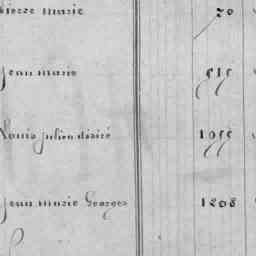 Pierre marie 20
Jean marie 515
Louis Julien désiré 1055
Jean marie Georges 1208